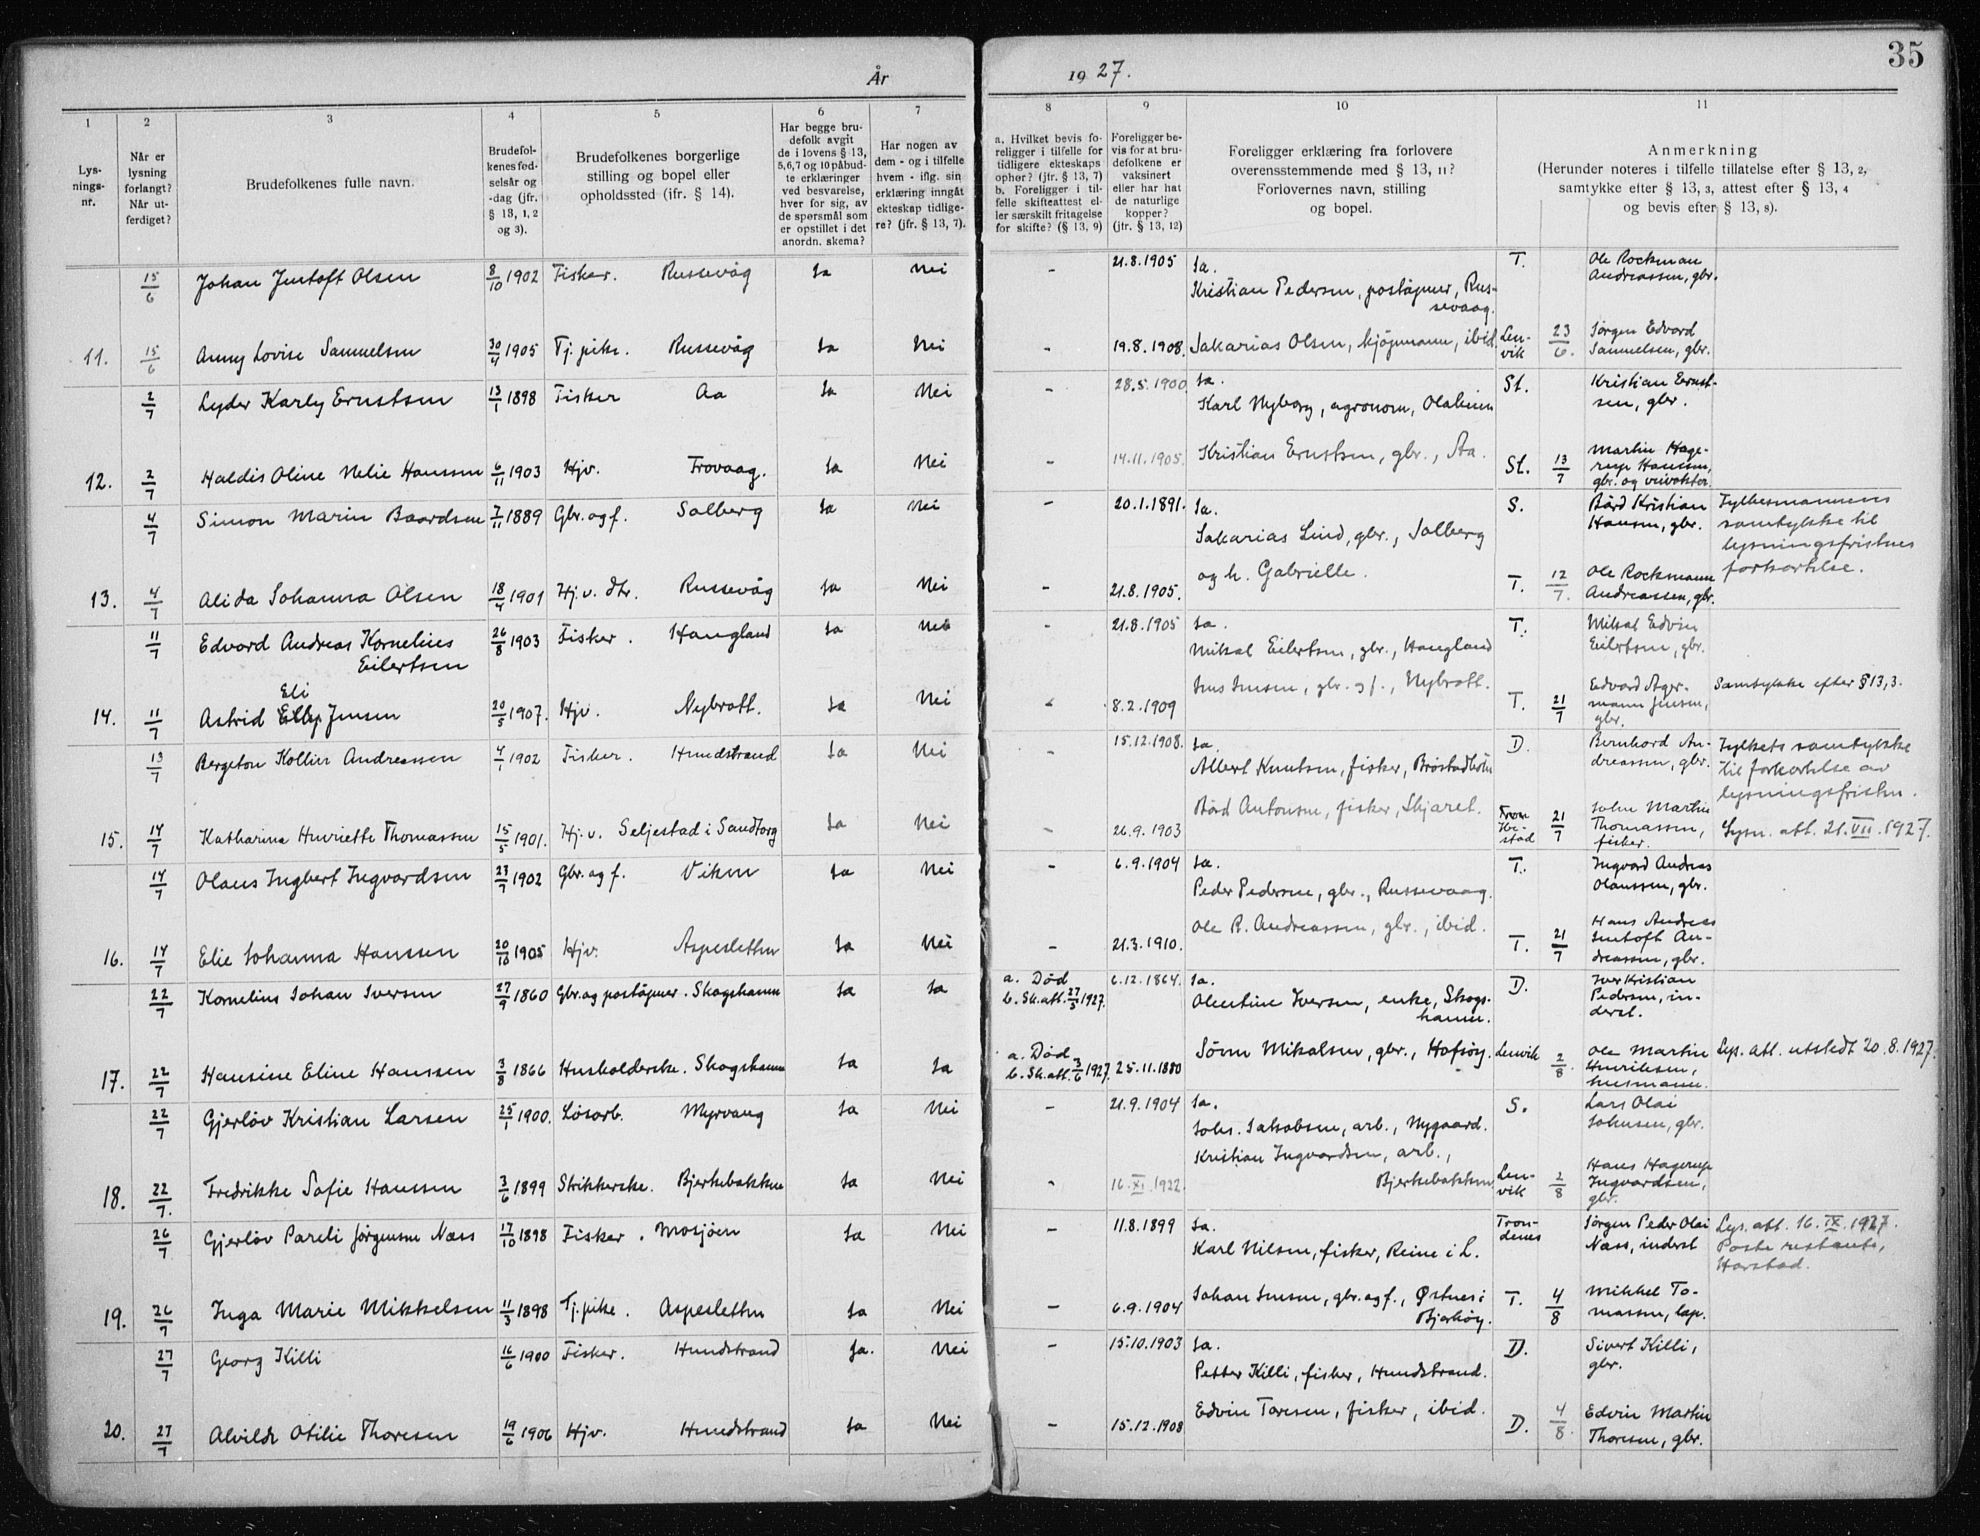 35
År 1927.
1 2 3 4 5 6 7 8 9 10 11
Lys-
nings-
nr.
Når er
lysning
forlangt?
Når ut-
ferdiget?
Brudefolkenes fulle navn.
Brudefol-
kenes fød-
selsår og
-dag (jfr.
§ 13, 1, 2
og 3).
Brudefolkenes borgerlige
stilling og bopel eller
opholdssted (ifr. § 14).
Har begge bru-
defolk avgit
de i lovens § 13,
5,6,7 og 10 påbud-
te erklæringer
ved besvarelse,
hver for sig, av
de spørsmål som
er opstillet i det
anordn. skema?
Har nogen av
dem - og i tilfelle
hvem - iflg. sin
erklæring inngått
ekteskap tidlige-
re? (jfr. § 13, 7).
a. Hvilket bevis fo-
religger i tilfelle for
tidligere ekteskaps
ophør? (jfr. § 13, 7)
b. Foreligger i til-
felle skifteattest el-
ler særskilt fritagelse
for skifte? (§ 13, 9)
Foreligger be-
vis for at bru-
defolkene er
vaksinert
eller har hat
de naturlige
kopper?
(jfr. § 13, 12)
Foreligger erklæring fra forlovere
overensstemmende med § 13, 11?
Forlovernes navn, stilling
og bopel.
Anmerkning
(Herunder noteres i tilfelle tillatelse efter § 13, 2,
samtykke efter § 13, 3, attest efter § 13, 4
og bevis efter § 13, 8).
15/6 Johan Jentoft Olsen 8/10 1902 Fisker. Russevåg Ja Nei - 21.8.1905 Ja. T. Ole Rockman
Kristian Pedersen, poståpner, Rus- Andreassen, gbr.
sevaag.
11. 15/6 Anny Lovise Samuelsen 30/4 1905 Tj.pike. Russevåg Ja Nei - 19.8.1908. Sakarias Olsen, kjøpmann, ibid. Len- 23/6. Jørgen Edvard
vik Samuelsen, gbr.
2/7 Lyder Karly Ernstsen 13/1 1898 Fisker Aa Ja Nei - 28.5.1900 Ja. St. Kristian Ernst-
Karl Nyborg, agronom, sen, gbr.
12. 2/7 Haldis Oline Nelie Hanssen 6/11 1903 Hjv. Trovaag. Ja Nei - 14.11.1905. Kristian Ernstsen, gbr., Aa. St. 13/7 Martin Hage-
rup Hanssen,
gbr. og veivokter.
4/7 Simon Marin Baardsen 7/11 1889 Gbr. og f. Solberg Ja Nei - 20.1.1891. Ja. S. Bård Kristian Fylkesmannens
Sakarias Lind, gbr., Solberg Hansen, gbr. samtykke til
og h. Gabrielle. lysningsfristens
forkortelse.
13. 4/7 Alida Johanna Olsen 18/4 1901 Hj.v. dtr. Russevåg Ja Nei - 21.8.1905. T. 12/7. Ole Rockmann
Andreassen, gbr.
11/7 Edvard Andreas Kornelius 26/8 1903 Fisker. Haugland Ja Nei - 21.8.1905 Ja. T. Mikal Edvin
Eilertsen Mikal Eilertsen, gbr., Haugland Eilertsen, gbr.
Eli
14. 11/7 Astrid Elly Jensen 20/5 1907. Hjv. Nybrott. Ja Nei - 8.2.1909 Jens Jensen, gbr. og f., Nybrott. T. 21/7 Edvard Ager- Samtykke efter § 13,3.
mann Jensen,
gbr.
13/7 Bergeton Kollier Andreassen 4/1 1902 Fisker. Hundstrand Ja Nei - 15.12.1908. Ja. D. Bernhard An- Fylkets samtykke
Albert Knutsen, fisker, Brøstadbotn dreassen, gbr. til forkortelse av
lysningsfristen.
15. 14/7 Katharina Henriette Thomassen 15/5 1901. Hj.v. Seljestad i Sandtorg Ja Nei - 26.9.1903 Bård Antonsen, fisker, Skjaret. 21/7 John Martin
Thomassen, Lysn. att. 21.VII.1927.
fisker.
14/7 Olaus Ingbert Ingvardsen 23/7 1902 Gbr. og f. Viken Ja Nei - 6.9.1904 Ja. T. Ingvard Andreas
Peder Pedersen, gbr., Russevaag. Olaussen, gbr.
16. 14/7 Elie Johanna Hanssen 20/10 1905 Hjv. Aspesletten Ja Nei - 21.3.1910. Ole R. Andreassen, gbr., ibid. T. 21/7 Hans Andreas
Jentoft An-
dreassen, gbr.
22/7 Kornelius Johan Iversen 27/9 1860 Gbr. og poståpner. Skogshamn Ja Ja a. Død 6.12.1864. Ja. D. Iver Kristian
b. Sk.att. 27/5 1927. Olentine Iversen, enke, Skogs- Pedersen, in-
hamn. derst.
17. 22/7 Hansine Eline Hanssen 3/8 1866 Husholderske. Skogshamn Ja Ja a. Død 25.11.1880 Sören Mikalsen, gbr., Hofsøy. Lenvik 2/8. Ole Martin Lys. att. utstedt 20.8.1927.
b. Sk.att. 3/6 1927. Henriksen,
husmann.
22/7 Gjerløv Kristian Larsen 25/1 1900. Løsarb. Myrvang Ja Nei - 21.9.1904 Ja. S. Lars Olai
Johs. Jakobsen, arb., Nygaard. Johnsen, gbr.
Kristian Ingvardsen, arb.,
18. 22/7. Fredrikke Sofie Hanssen 3/6 1899 Strikkerske. Bjerkebakken Ja Nei - 16.XI.1922. Bjerkebakken Len- 2/8 Hans Hagerup
vik Ingvardsen,
gbr.
26/7 Gjerløv Pareli Jørgensen Næss 17/10 1898 Fisker. Mosjøen Ja Nei - 11.8.1899 Ja. Tron- Jørgen Peder Olai Lys. att. 16.IX.1927.
Karl Nilsen, fisker, Reine i L. denes Næss, inderst Poste restante,
Harstad.
19. 26/7 Inga Marie Mikkelsen 11/3 1898 Tj.pike. Aspesletten Ja Nei - 6.9.1904 Johan Jensen, gbr. og f., Østnes i T. 4/8 Mikkel To-
Bjarkøy. massen, lap.
27/7 Georg Killi 16/6 1900 Fisker. Hundstrand Ja. Nei - 15.10.1903 Ja. D. Sivert Killi,
Petter Killi, fisker, Hundstrand. gbr.
20. 27/7 Alvilde Otilie Thoresen 19/6 1906 Hjv. Hundstrand Ja Nei - 15.12.1908 Edvin Toresen, fisker, ibid. D. 4/8. Edvin Martin
Thoresen, gbr.